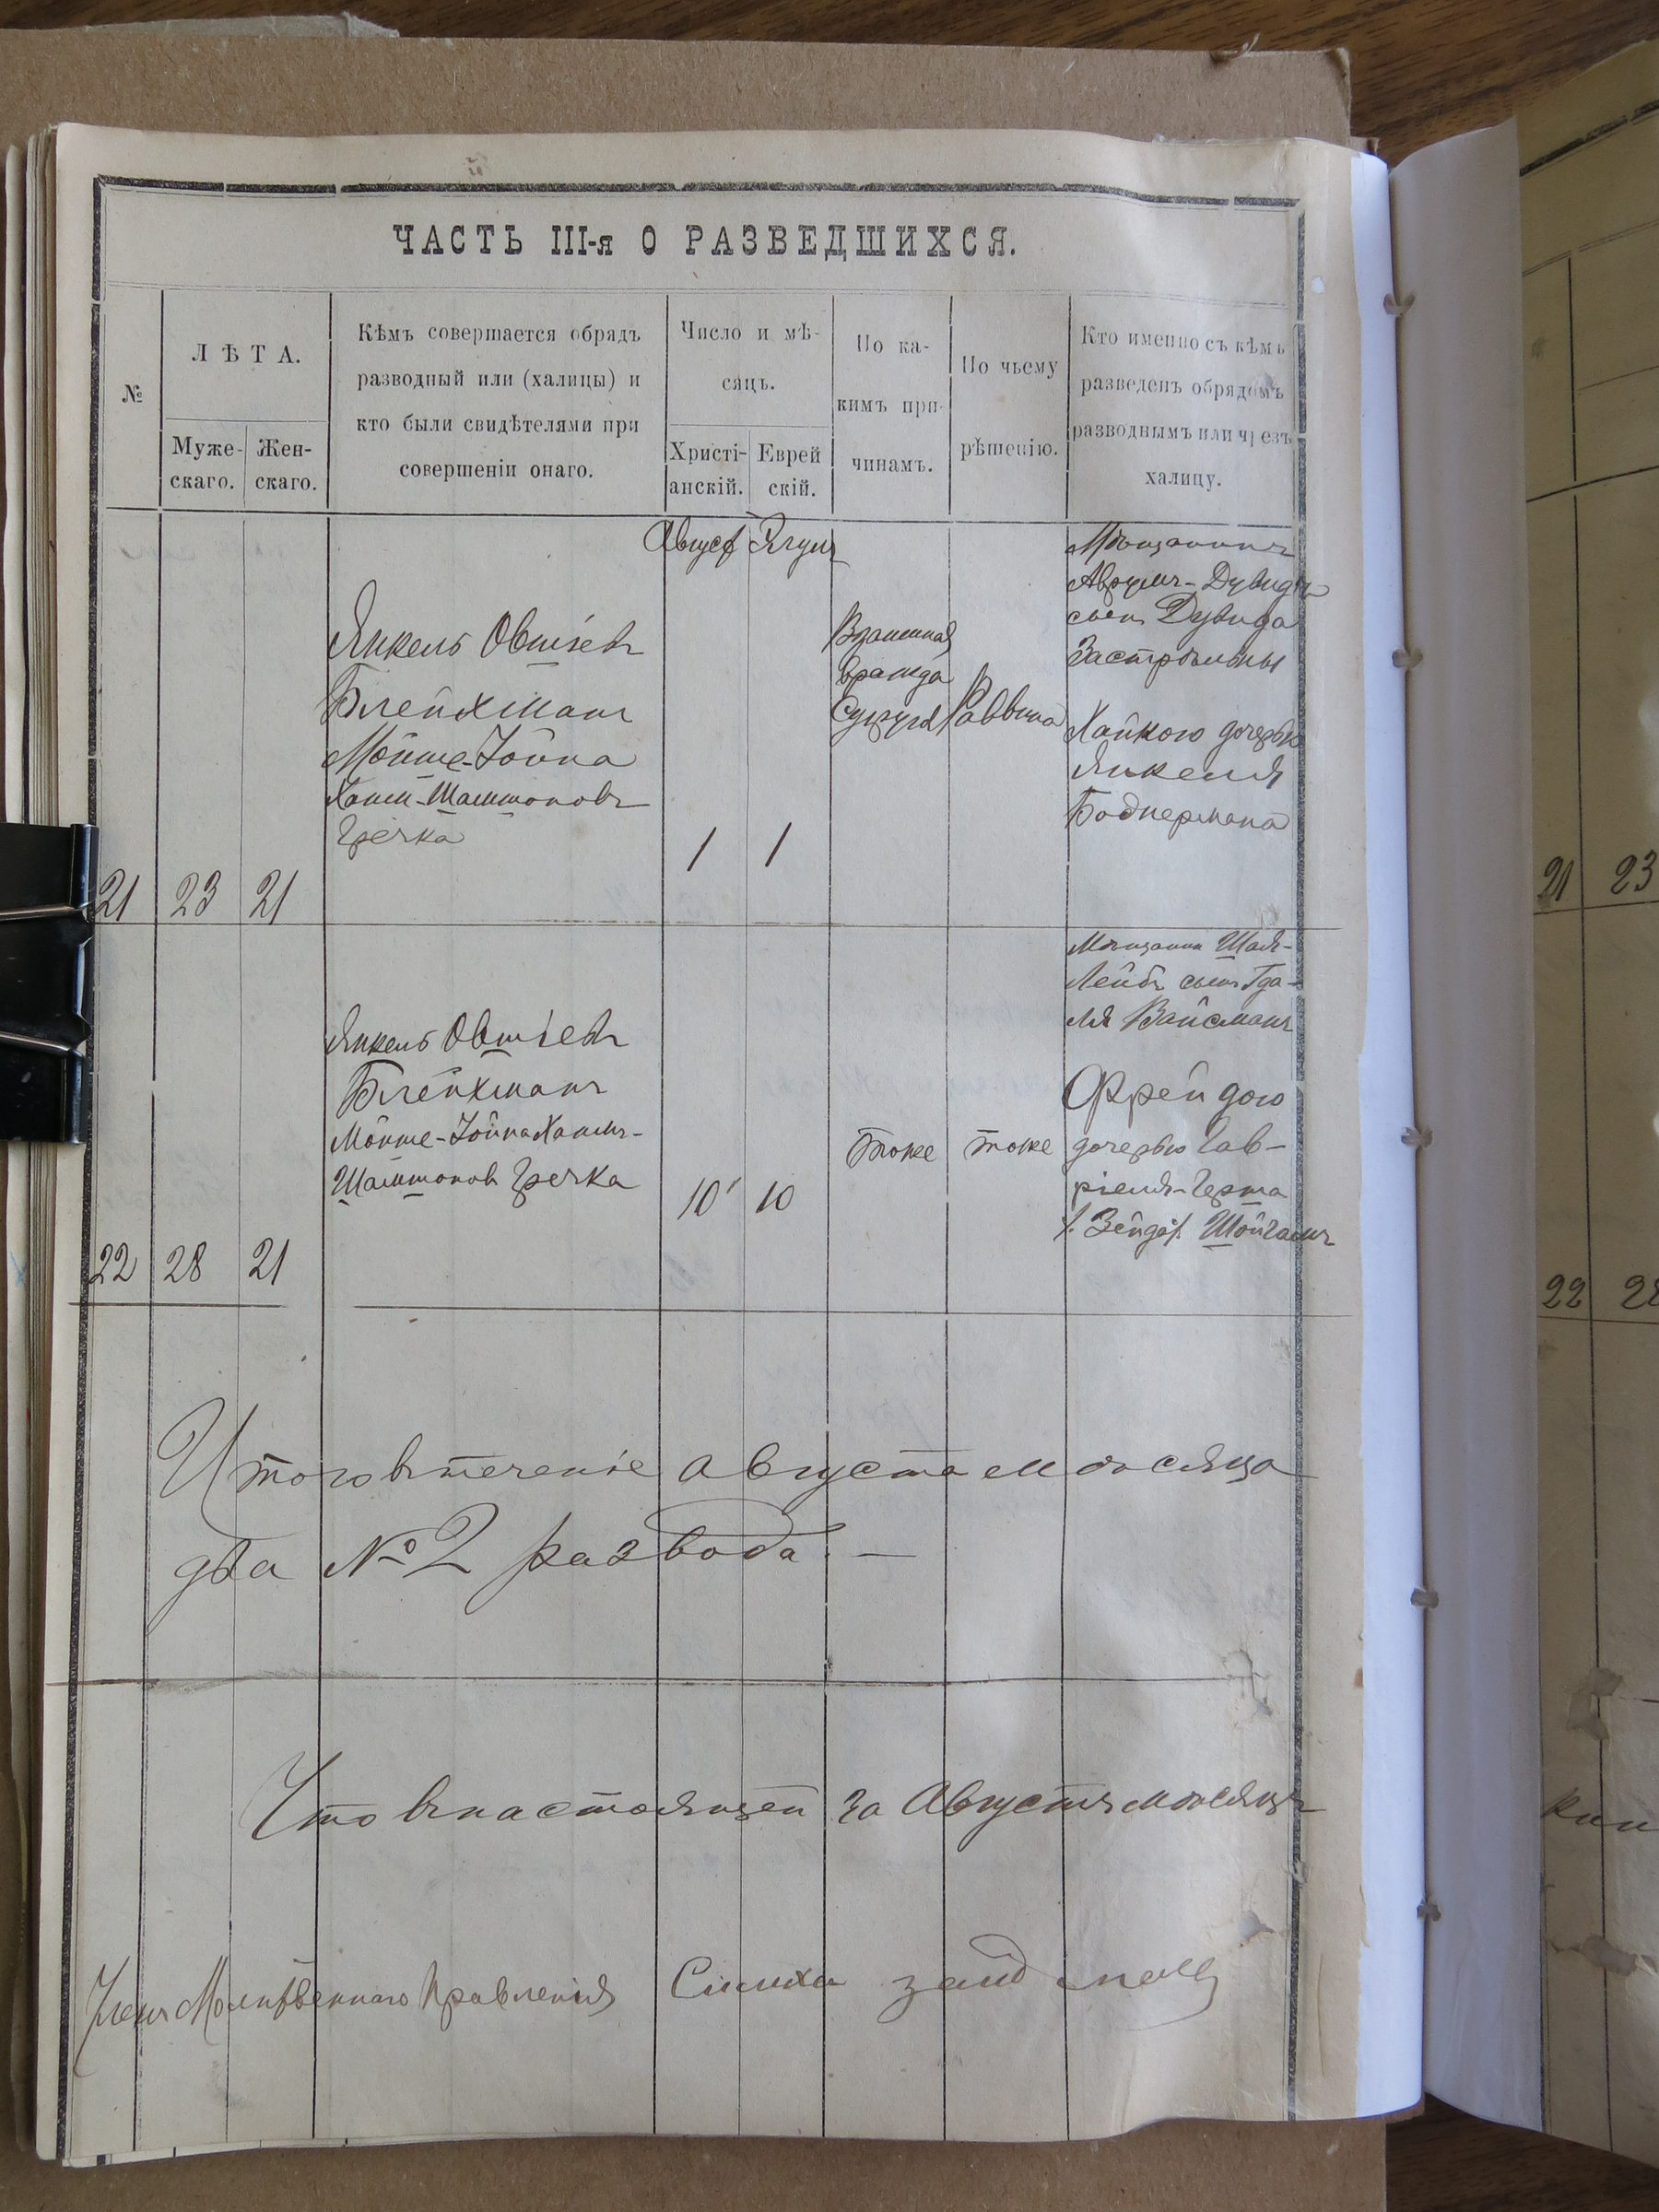 ЧАСТЬ III-я О РАЗВЕДШИХСЯ.
№
ЛѢТА.
Муже-
скаго.
Жен-
скаго.
Кѣмъ совершается обрядъ
разводный или (халицы) и
кто были свидѣтелями при
совершеніи онаго.
Число и мѣ-
сяцъ.
Христі-
анскій.
Еврей
скій.
По ка-
кимъ при-
чинамъ.
По чьему
рѣшенію.
Кто именно съ кѣмъ
разведенъ обрядомъ
разводнымъ или чрезъ
халицу.
21
23
21
Янкель Овшіевъ
Блейхманъ
Мойше-Іойна
Хаим-Шамшоновъ
Гречка
Август
Элулъ
1
1
Взаимная
вражда
Супругов
Раввина
Мѣщанинъ
Аврумъ-Дувидъ
сынъ Дувида
Застрѣльны
Хайкою дочерью
Янкеля
Боднермана
22
28
21
Янкель Овшіевъ
Блейхманъ
Мойше-Іойна Хаимъ-
Шамшонов Гречка
10
10
Тоже
тоже
Мѣщанин Шая-
Лейбъ сынъ Гда-
ля Вайсманъ
Фрейдою
дочерью Гав-
ріеля-Герша
Зейда Шойхатъ
Итого втеченіе августа мѣсяца
два № 2 развода. —
Что внастоящей за Августъ мѣсяцъ
Членъ Молитвеннаго Правленія Симха